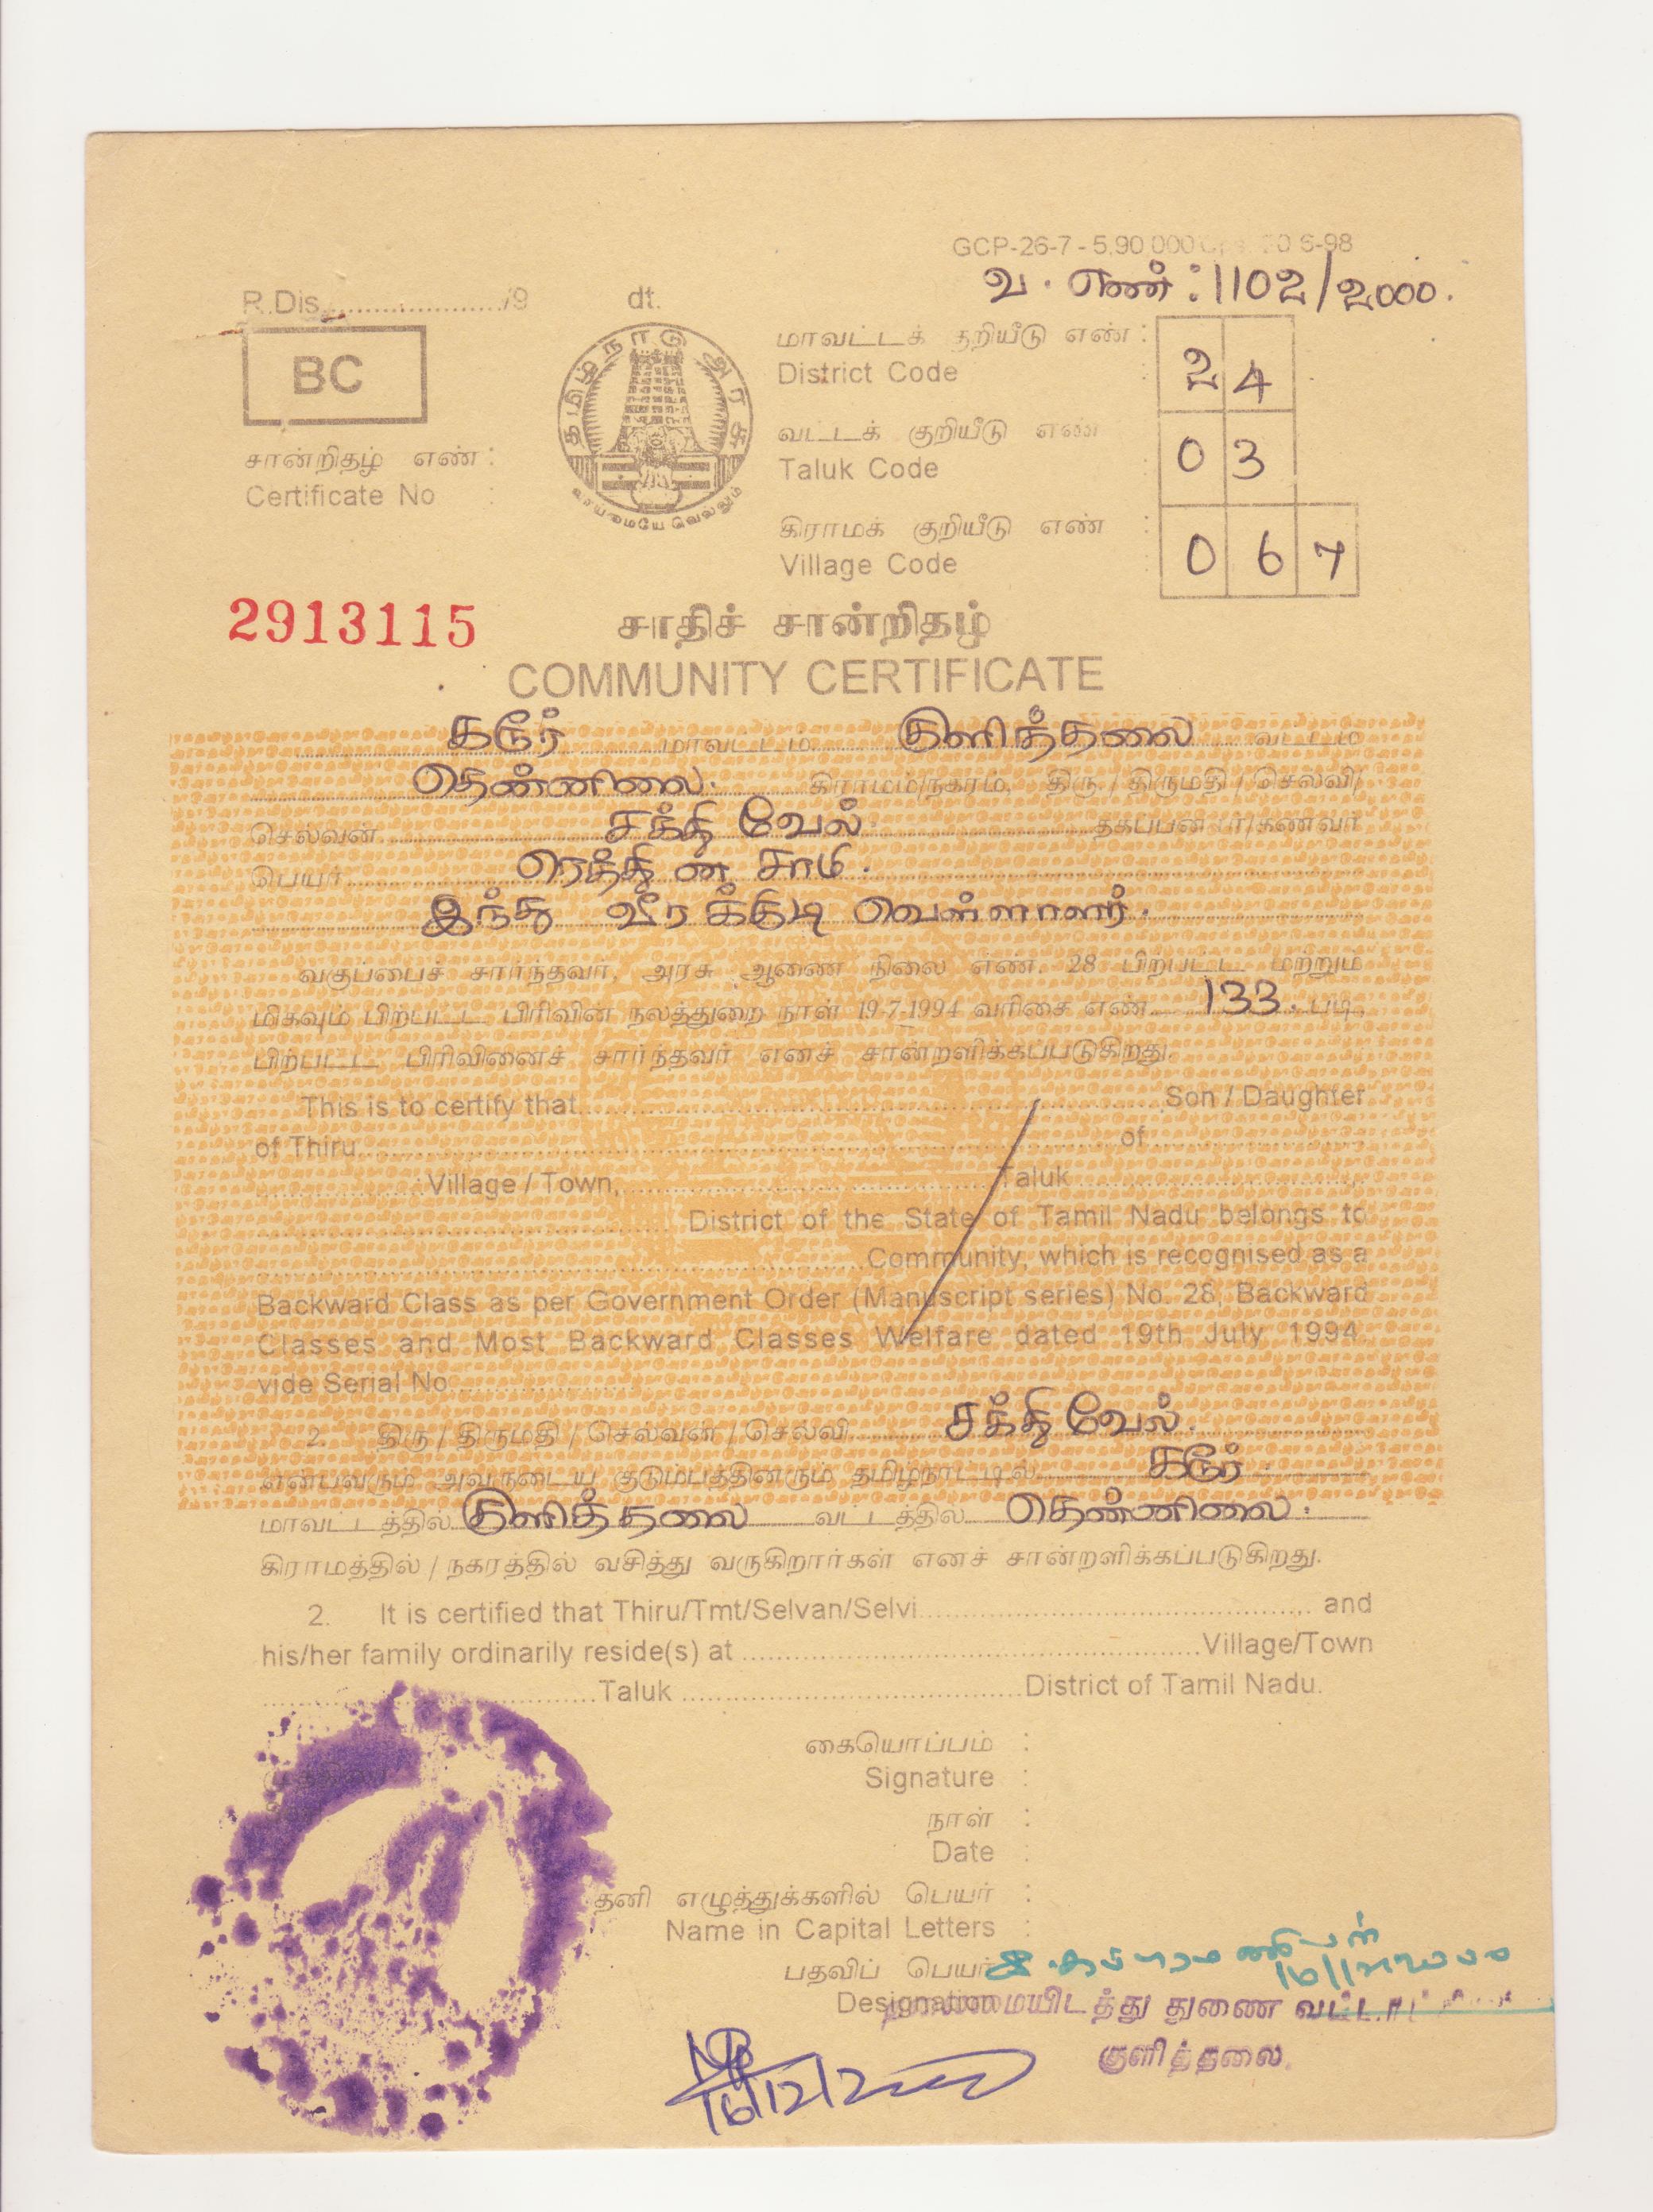 GCP-26-7 - 5,90,000 6-98
வ. எண் : 1102/2000.
R.Dis....................../9 dt.
BC
தமிழ்நாடு அரசு
வாய்மையே வெல்லும்
மாவட்டக் குறியீடு எண் :
District Code : 2 4
வட்டக் குறியீடு எண்
Taluk Code : 0 3
கிராமக் குறியீடு எண் :
Village Code : 0 6 7
சான்றிதழ் எண் :
Certificate No :
2913115
சாதிச் சான்றிதழ்
COMMUNITY CERTIFICATE
கரூர் மாவட்டம் குளித்தலை வட்டம்
தென்னிலை. கிராமம்/நகரம், திரு / திருமதி / செல்வி/
செல்வன் சக்தி வேல். தகப்பனார்/கணவர்
பெயர் ரெத்தின சாமி.
இந்து வீரக்குடி வெள்ளாளர்.
வகுப்பைச் சார்ந்தவர், அரசு ஆணை நிலை எண். 28 பிற்பட்ட மற்றும்
மிகவும் பிற்பட்ட பிரிவின் நலத்துறை நாள் 19-7-1994 வரிசை எண் 133. படி
பிற்பட்ட பிரிவினைச் சார்ந்தவர் எனச் சான்றளிக்கப்படுகிறது.
This is to certify that Son / Daughter
of Thiru of
Village / Town, Taluk
District of the State of Tamil Nadu belongs to
Community, which is recognised as a
Backward Class as per Government Order (Manuscript series) No. 28, Backward
Classes and Most Backward Classes Welfare dated 19th July 1994
vide Serial No
2. திரு / திருமதி / செல்வன் / செல்வி சக்தி வேல்.
என்பவரும் அவருடைய குடும்பத்தினரும் தமிழ்நாட்டில் கரூர்.
மாவட்டத்தில் குளித்தலை வட்டத்தில் தென்னிலை.
கிராமத்தில் / நகரத்தில் வசித்து வருகிறார்கள் எனச் சான்றளிக்கப்படுகிறது.
2. It is certified that Thiru/Tmt/Selvan/Selvi and
his/her family ordinarily reside(s) at Village/Town
Taluk District of Tamil Nadu.
கையொப்பம் :
Signature :
நாள் :
Date :
தனி எழுத்துக்களில் பெயர் :
Name in Capital Letters :
பதவிப் பெயர்
Designation
தலைமையிடத்து துணை வட்டாட்சியர்
குளித்தலை.
16/12/2000